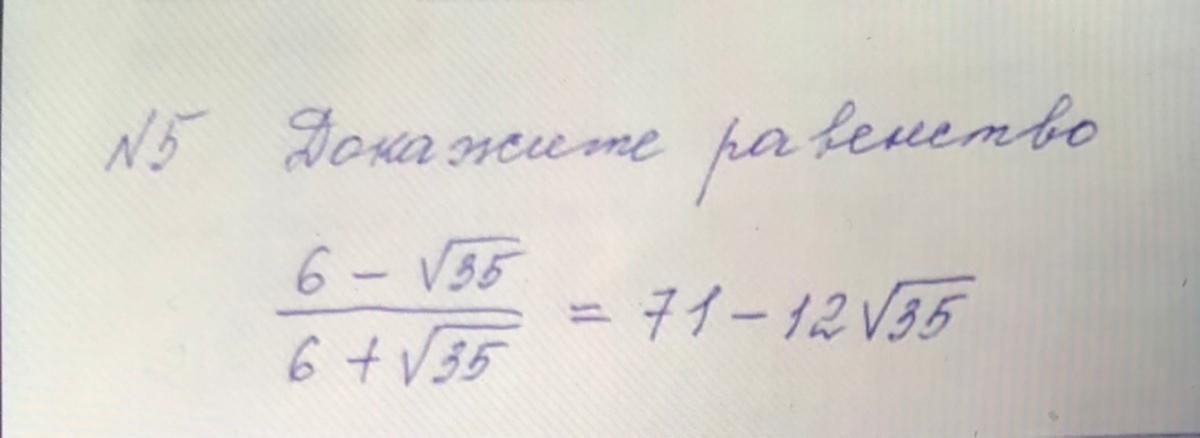 №5 Докажите равенство
(6 - √35)/(6 + √35) = 71 - 12√35